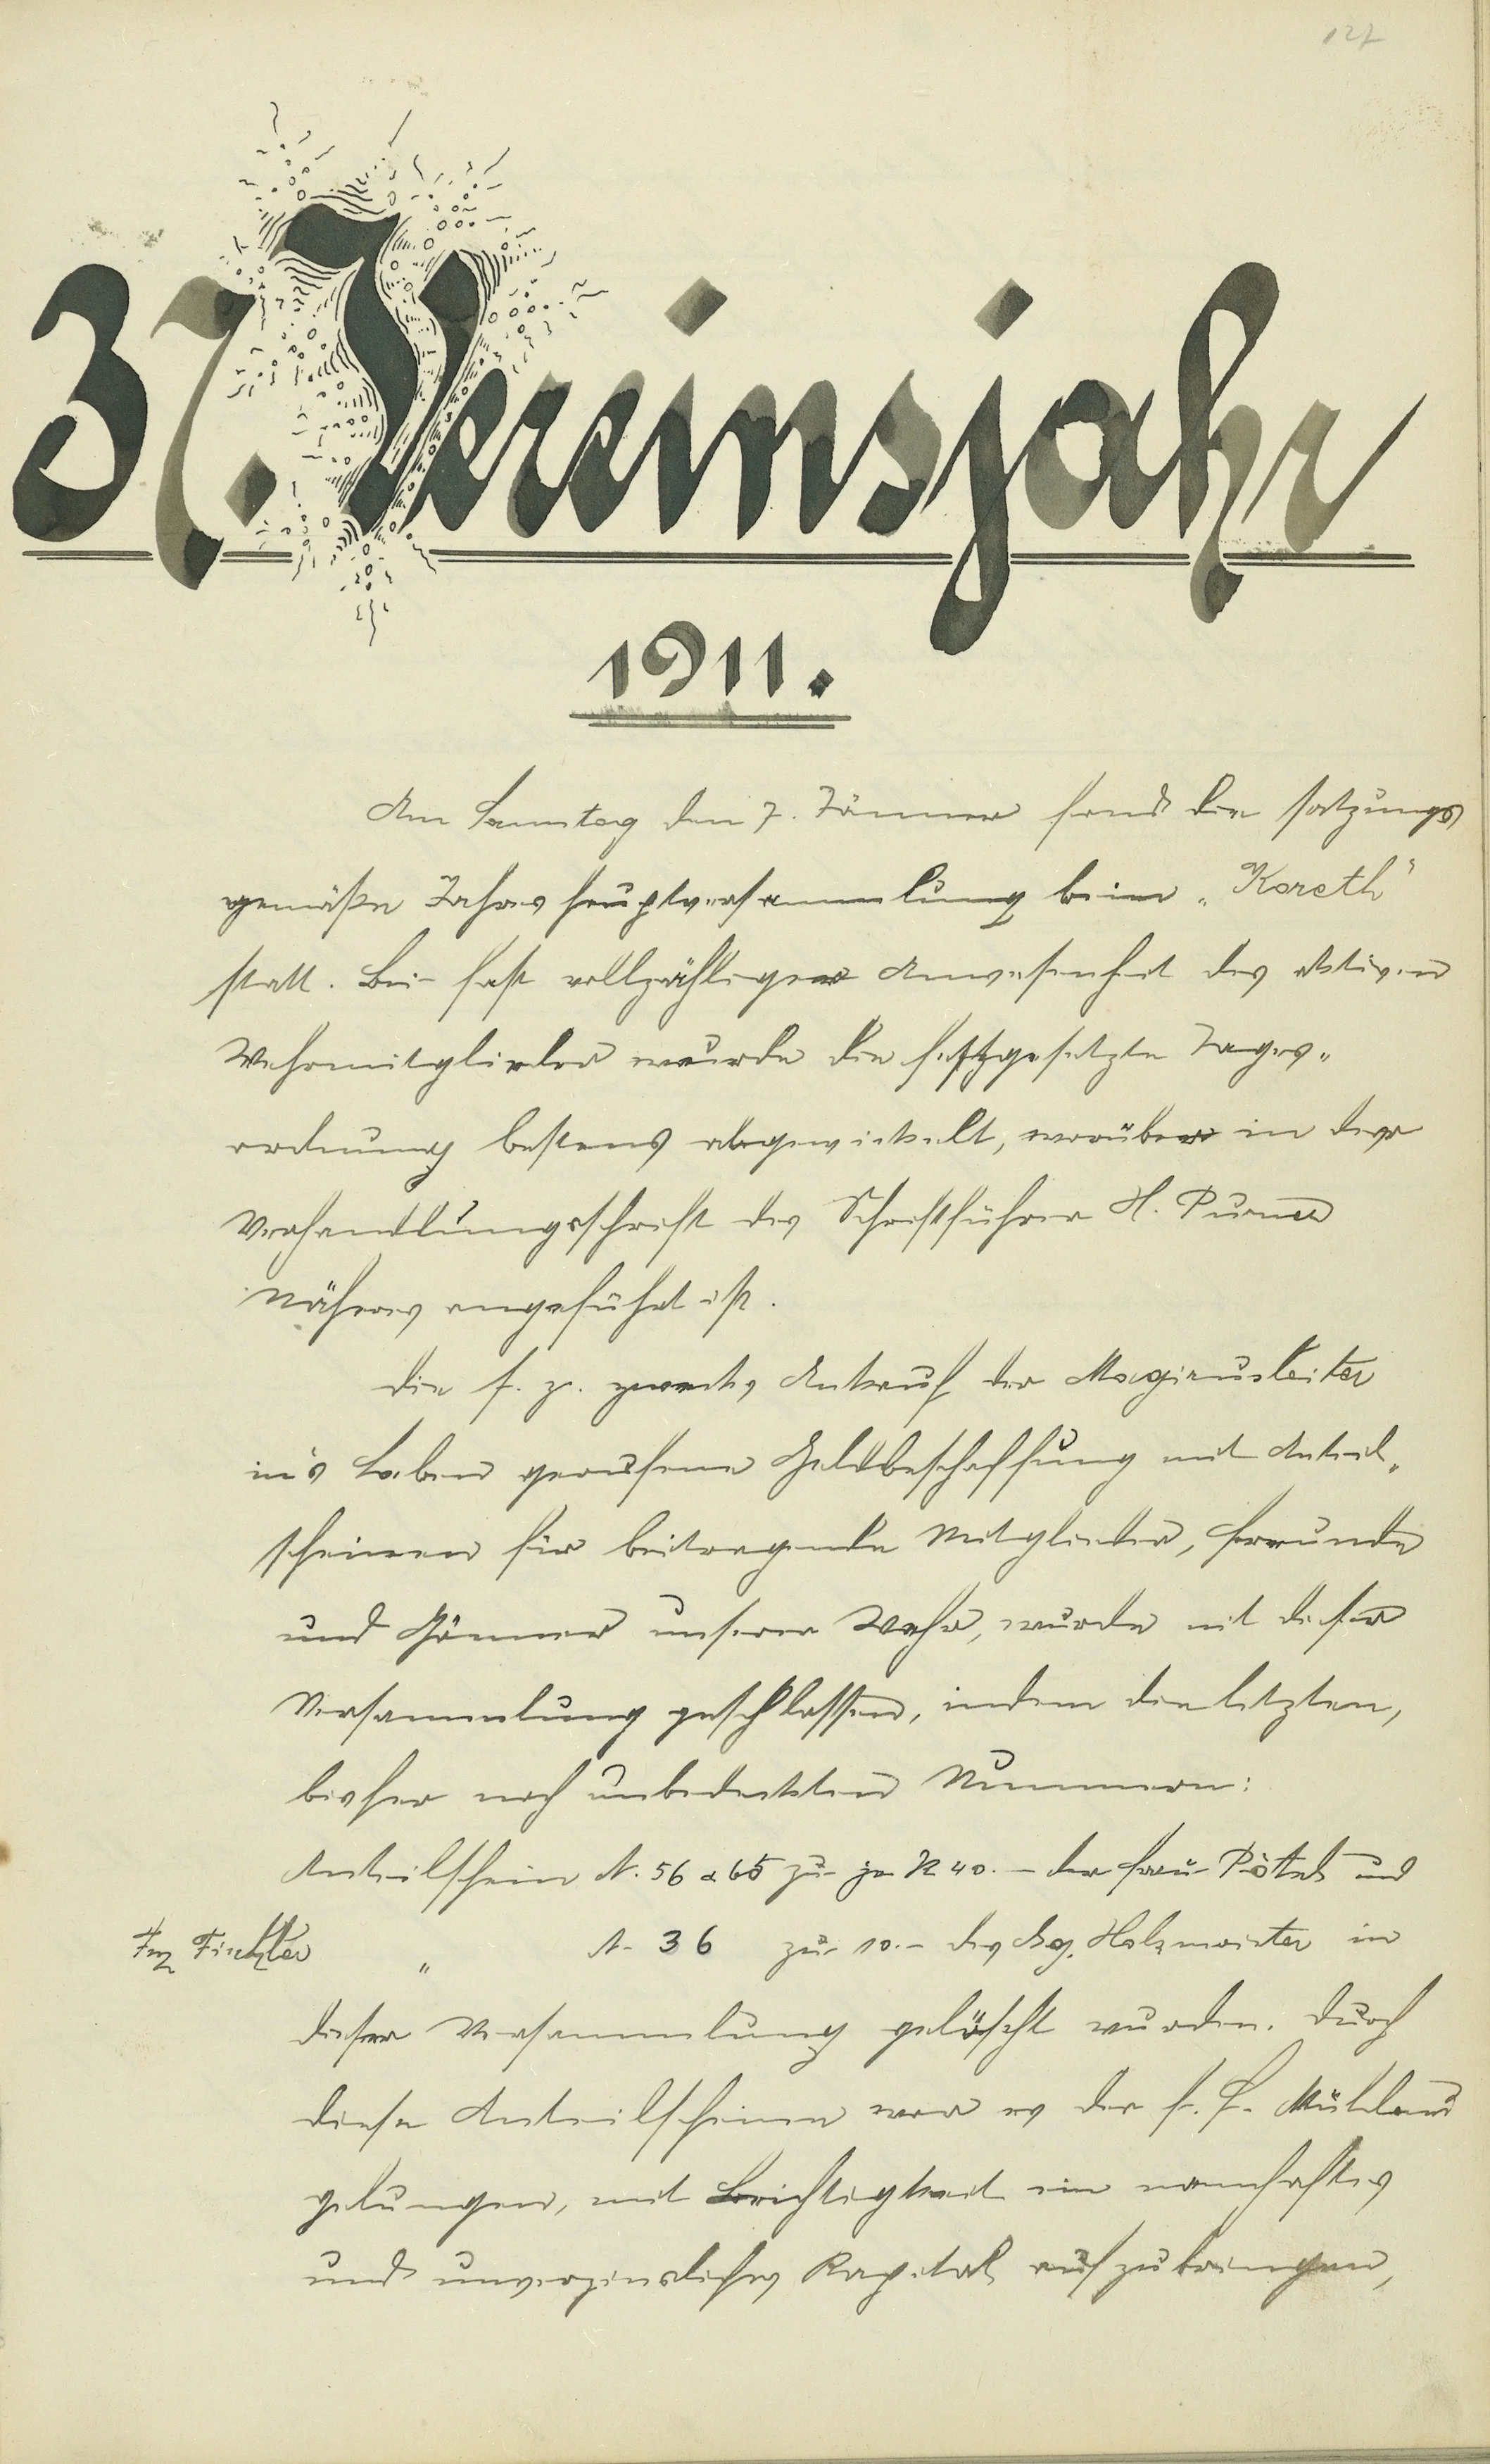 127
37. Vereinsjahr
1911.
Am Samstag den 7. Jänner fand die satzungs
gemäße Jahreshauptversammlung beim „Koreth"
statt. Bei fast vollzähliger Anwesenheit der aktiven
Wehrmitglieder wurde die festgesetzte Tages„
ordnung bestens abgewickelt, worüber in der
Verhandlungsschrift des Schriftführer H. Purner
Näheres angeführt ist.
Die s. z. zwecks Ankauf der Magirusleiter
in's Leben gerufene Geldbeschaffung mit Anteil„
scheinen für beitragende Mitglieder, Freunde
und Gönner unserer Wehr, wurde mit dieser
Versammlung geschlossen, indem die letzten,
bisher noch unbedeckten Nummern:
Anteilschein N. 56 & 65 zu je K 40.– der Frau und
Frz „ N. 36 zu 10.– des Holzmeister in
dieser Versammlung gelöscht wurden. Durch
diese Anteilscheine war es der f. F. Mühlau
gelungen, mit Leichtigkeit ein namhaftes
und unverzinsliches Kapital aufzubringen,